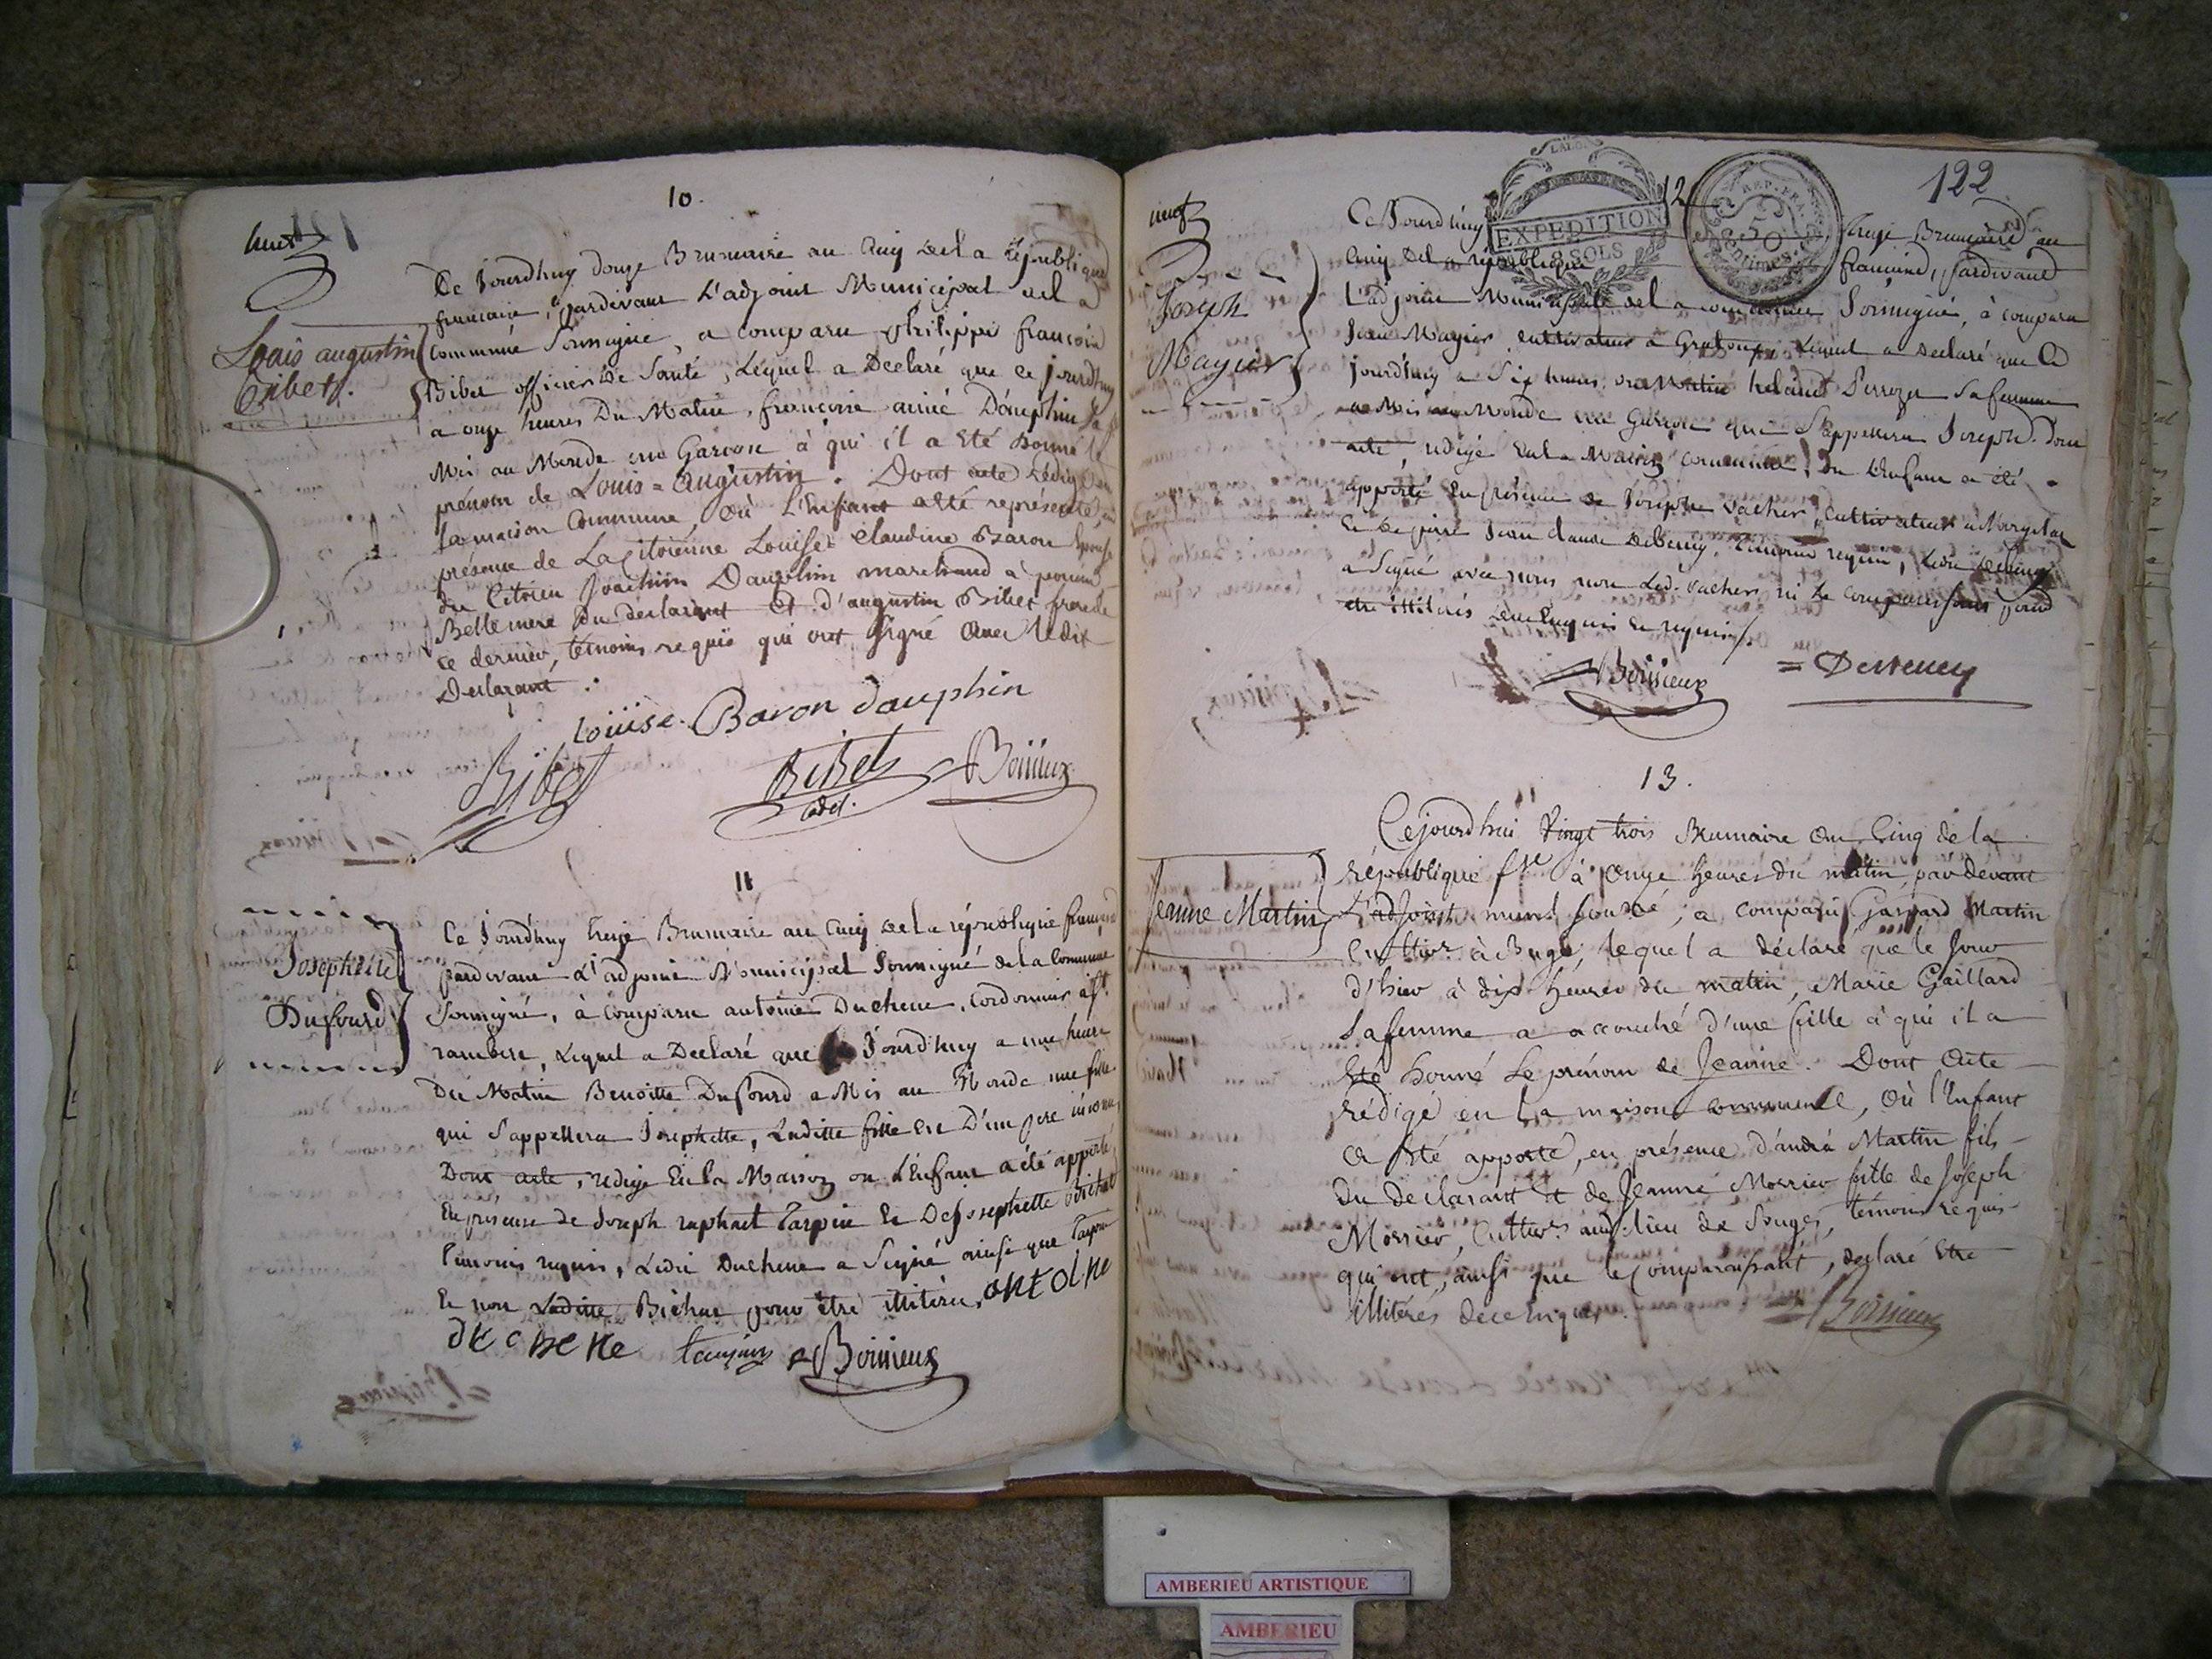 10.
Ce Jourdhuy douze Brumaire an Cinq de la république
francaise, pardevant L'adjoint Municipal de la
commune Soussigné, a comparu philippe francois
Louis augustin
Bibet.
Bibet officier De Santé, Lequel a Declaré que ce jourdhuy
à onze heures Du Matin, francoise aimé Dauphin Sa
Mis au Monde un Garcon à qui il a été donné le
prénom de Louis=Augustin. Dont acte rédigé en
la maison Commune, où L'Enfant a été représenté, en
présence de La Citoienne Louise Claudine Baron Epouse
du Citoien Joachim Dauphin marchand à
Bellemere du déclarant et d'augustin Bibet frere de
ce dernier, témoins requis qui ont signé avec ledit
Déclarant.
Louise Baron Dauphin
Bibet Bibet cadet. Boissieux
11
Ce Jourdhuy treize Brumaire an Cinq de la république francaise
pardevant L'adjoint Municipal Soussigné de la Commune
Josephette
Dufourd
Soussigné, à comparu antoine Duchene, Cordonnier à St.
rambert, Lequel a Declaré que Jourdhuy a une heure
Du Matin Benoitte Dufourd a Mis au Monde une fille
qui S'appellera Josephette, Laditte fille est D'un pere inconnu,
Dont acte, redigé En la Maison ou L'Enfant a été apporté,
En présence de Joseph raphael Tarpin Et De Josephette Bichat
temoins requis, Ledit Duchene a Signé ainsi que
Et non Laditte Bichat pour être illitérée. antoine
duchene Boissieux
122
12
EXPEDITION
8 SOLS
REP. FRA.
50
Centimes.
Ce Jourdhuy treize Brumaire an
Cinq De la république francaise, pardevant
Joseph
Mayier
L'adjoint Municipal de la commune Soussigné, à comparu
Jean Mayier cultivateur à Lequel a declaré que Ce
jourdhuy a Six heures du Matin Perrozet Sa femme
a Mis au Monde un Garcon qui S'appellera Joseph. Dont
acte, redigé En la Maison commune, ou L'Enfant a été
apporté En présence de Joseph Vacher, Cultivateur a
Et de Jean Claude temoins requis, Ledit
a Signé avec nous non Led. Vacher ni Le comparaissant pour
etre illitérés de ce Enquis Et requis.
Boissieux
13.
Cejourd'hui Vingt trois Brumaire an Cinq de la
république fse à onze heures du matin, par devant
Jeanne Martin
L'adjoint munal soussé, a comparu Gaspard Martin
Cultivr. à Lequel a déclaré que le Jour
D'hier à dix heures du matin, Marie Gaillard
Sa femme a accouché d'une fille à qui il a
Eté donné Le prénom de Jeanne. Dont Acte
rédigé en la maison commune, où l'Enfant
a Eté apporté, en présence d'andré Martin fils
du declarant et de Jeanne Morrier fille de Joseph
Morrier, Cultivr. aud. lieu de témoins requis
qui ont, ainsi que le Comparoissant, declaré Etre
illitérés de ce Enquis. Boissieux
AMBERIEU ARTISTIQUE
AMBERIEU